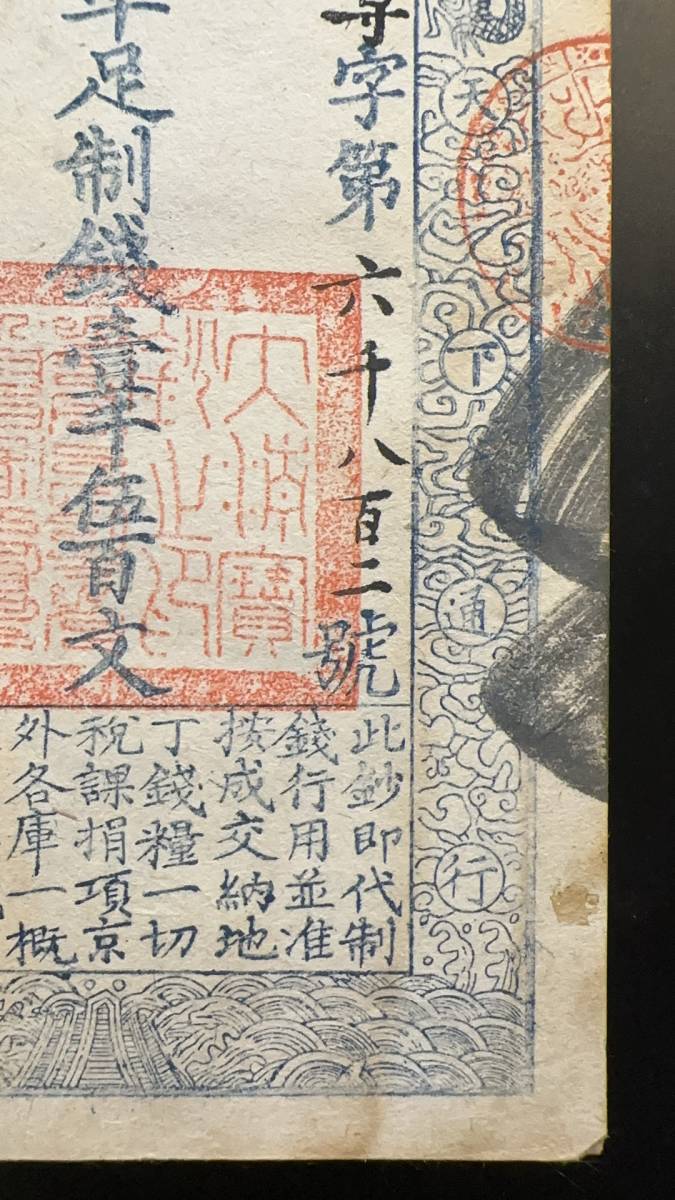 天下通行
字第六千八百二號
大清寶
鈔之印
足制錢壹千伍百文
此鈔即代制
錢行用並准
按成交納地
丁錢糧一切
稅課捐項京
外各庫一概